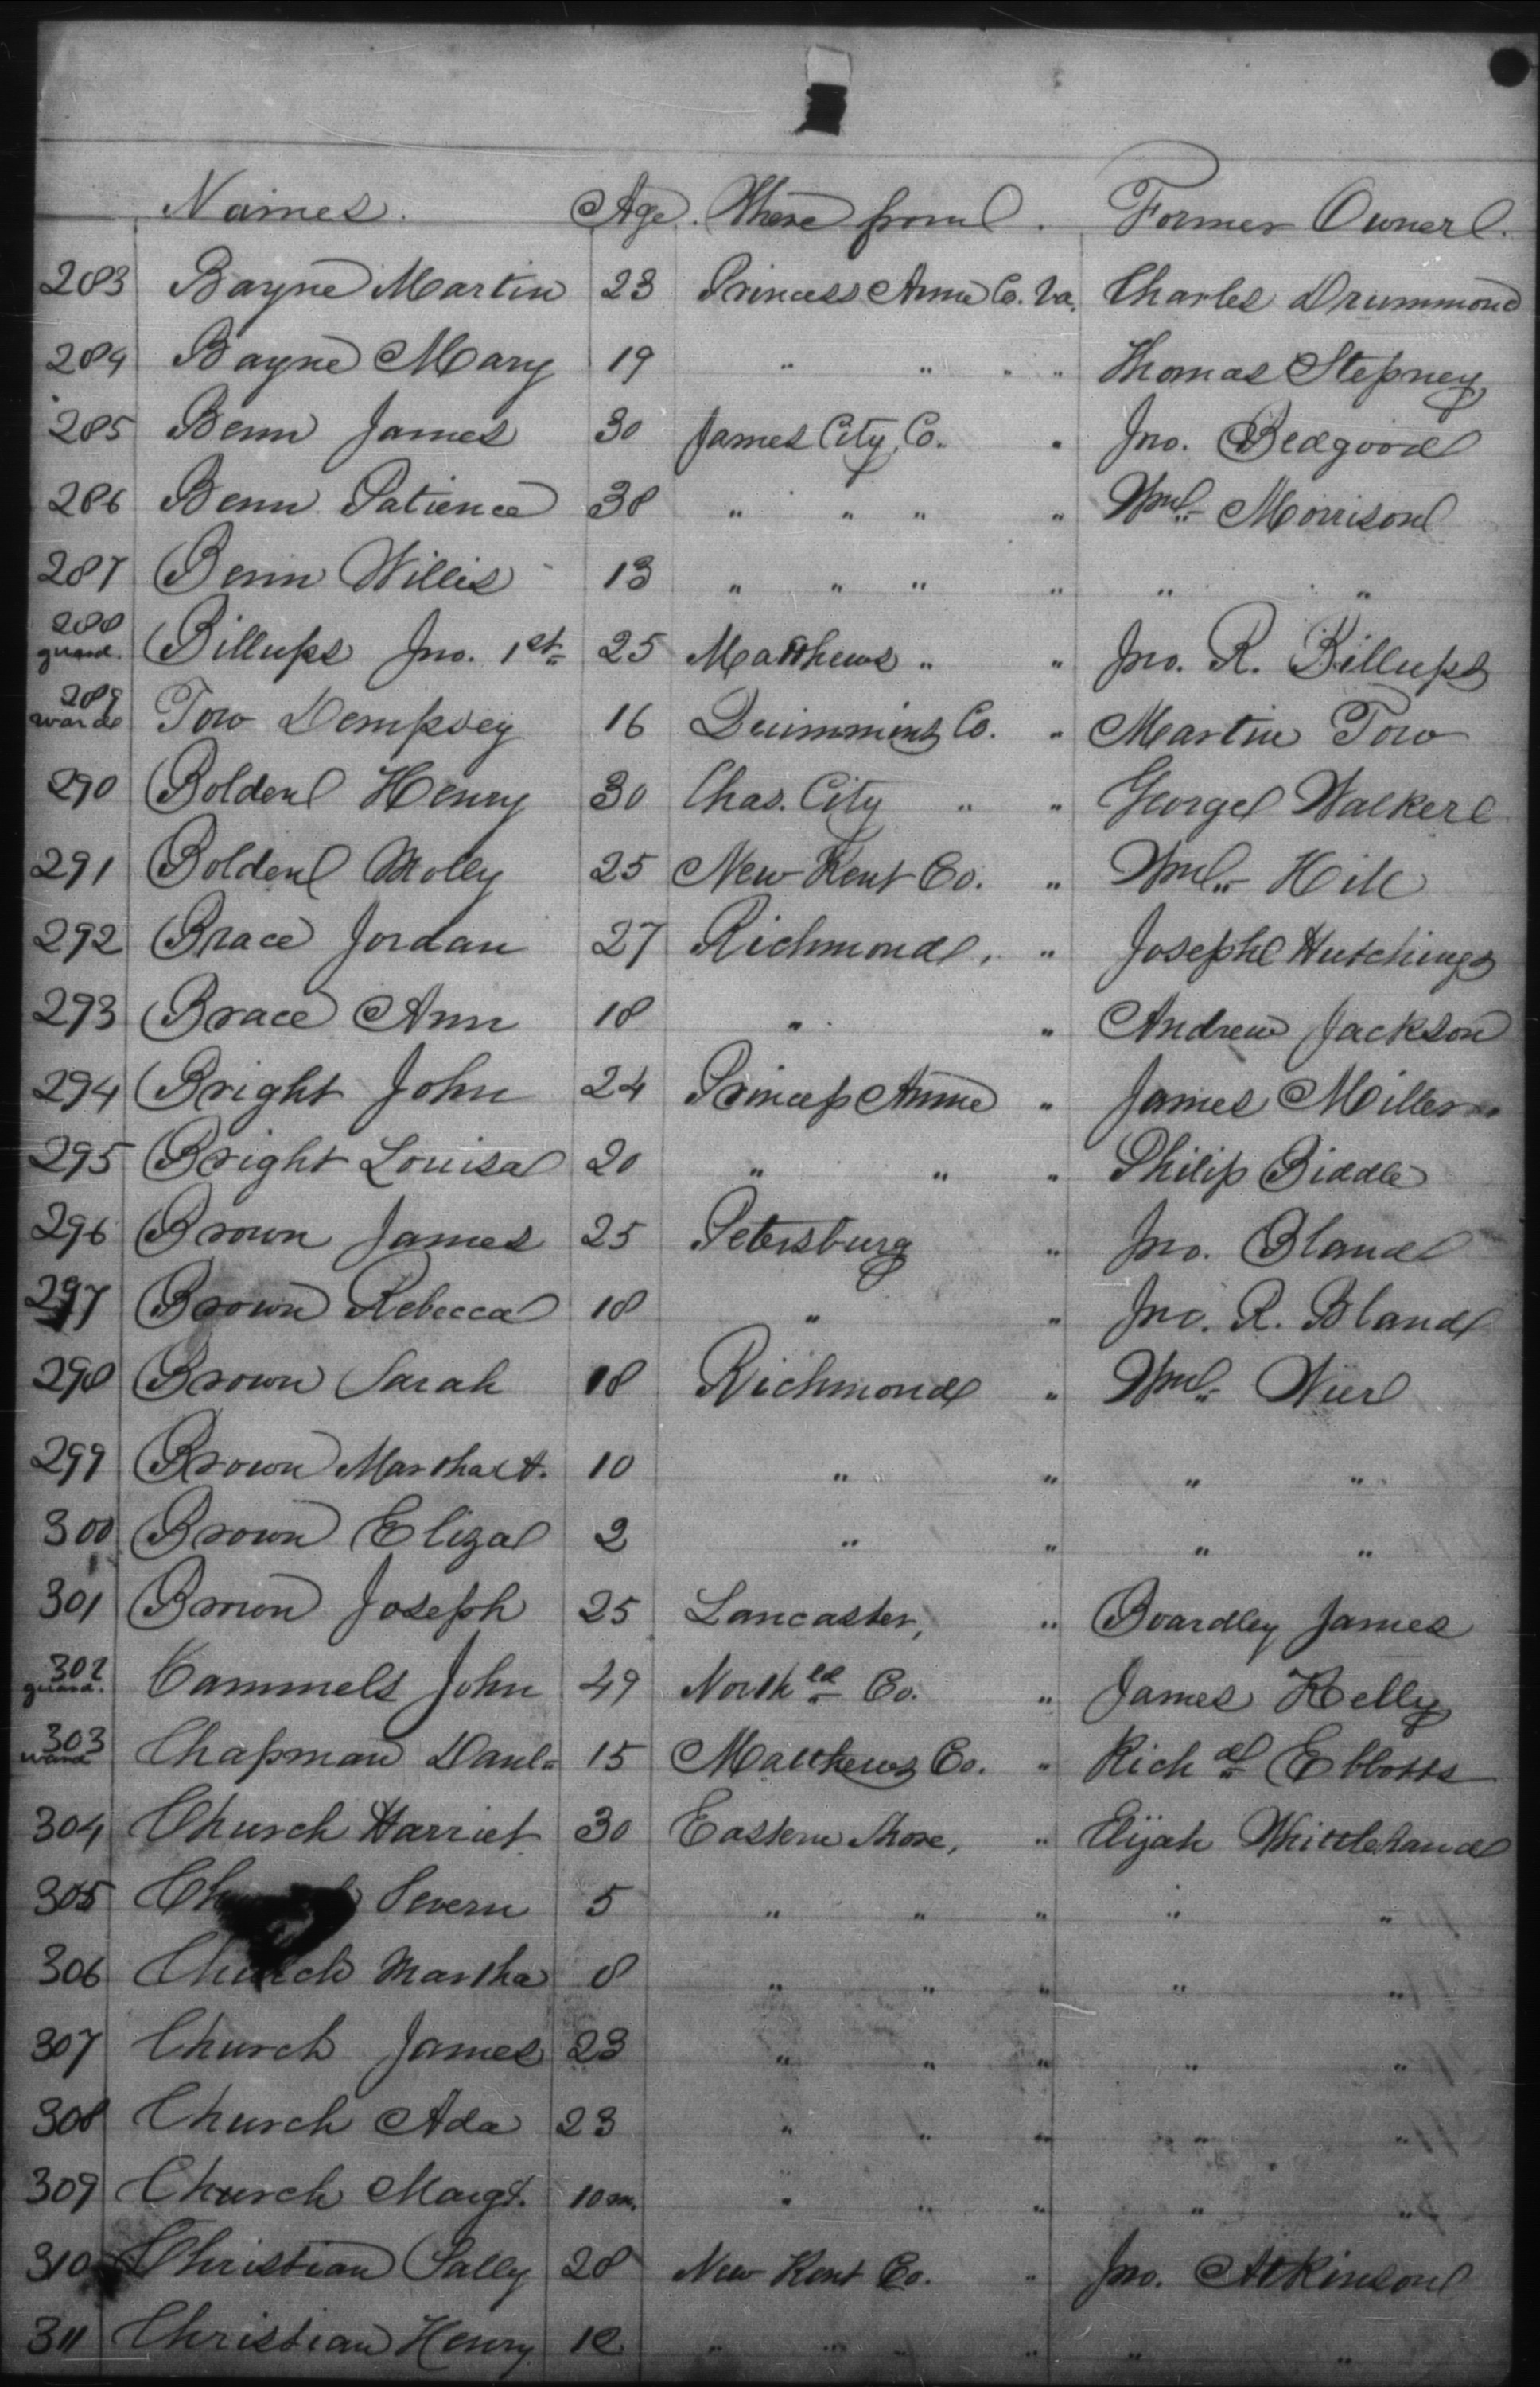 Names. Age. Where from. Former Owner.
283 Bayne Martin 23 Princess Anne Co. Va. Charles Drummond
284 Bayne Mary 19 " " " " Thomas Stepney
285 Benn James 30 James City Co. " Jno. Bedgood
286 Benn Patience 38 " " " " Wm. Morrison
287 Benn Willis 13 " " " " " "
288 guard. Billups Jno. 1st 25 Matthews " " Jno. R. Billups
289 ward Tow Dempsey 16 Co. " Martin Tow
290 Bolden Henry 30 Chas. City " " George Walker
291 Bolden Molly 25 New Kent Co. " Wm. Hill
292 Brace Jordan 27 Richmond, " Joseph Hutchings
293 Brace Ann 18 " " Andrew Jackson
294 Bright John 24 Princess Anne " James Miller
295 Bright Louisa 20 " " " Philip Biddle
296 Brown James 25 Petersburg " Jno. Bland
297 Brown Rebecca 18 " " Jno. R. Bland
298 Brown Sarah 18 Richmond " Wm. Wier
299 Brown Martha A. 10 " " " "
300 Brown Eliza 2 " " " "
301 Brown Joseph 25 Lancaster, " Boardley James
302 guard. Cammels John 49 Northld Co. " James Kelly
303 ward Chapman Danl. 15 Matthews Co. " Richd Ebbotts
304 Church Harriet 30 Eastern Shore, " Elijah Whittlehand
305 Severn 5 " " " " "
306 Church Martha 8 " " " " "
307 Church James 23 " " " " "
308 Church Ada 23 " " " " "
309 Church Margt. 10 m. " " " " "
310 Christian Sally 28 New Kent Co. " Jno. Atkinson
311 Christian Henry " " " " " "